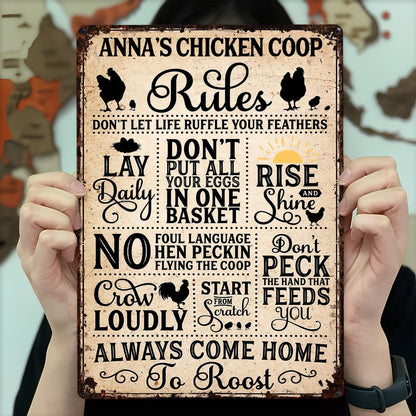 ANNA'S CHICKEN COOP
Rules
DON'T LET LIFE RUFFLE YOUR FEATHERS
LAY
Daily
DON'T
PUT ALL
YOUR EGGS
IN ONE
BASKET
RISE
AND
Shine
NO
FOUL LANGUAGE
HEN PECKIN
FLYING THE COOP
Don't
PECK
THE HAND THAT
FEEDS
YOU
Crow
LOUDLY
START
FROM
Scratch
ALWAYS COME HOME
To Roost